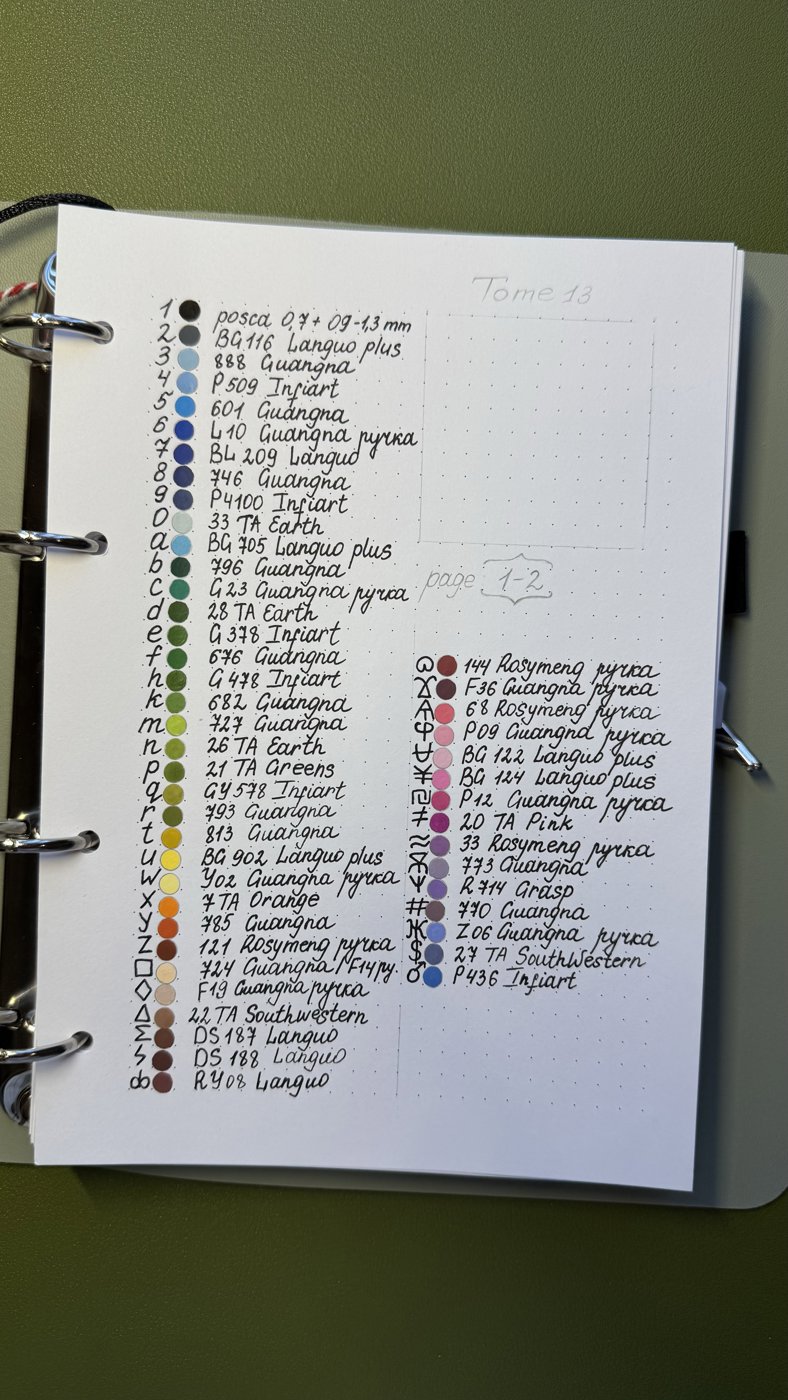 Tome 13
1 posca 0,7 + 09-1,3 mm
2 BG116 Languo plus
3 888 Guangna
4 P509 Infiart
5 601 Guangna
6 L10 Guangna ручка
7 BL 209 Languo
8 746 Guangna
9 P4100 Infiart
0 33 TA Earth
a BG 705 Languo plus
b 796 Guangna
c G23 Guangna ручка
d 28 TA Earth
e G 378 Infiart
f 676 Guangna
h G 478 Infiart
k 682 Guangna
m 727 Guangna
n 26 TA Earth
p 21 TA Greens
q GY 578 Infiart
r 793 Guangna
t 813 Guangna
u BG 902 Languo plus
w Y02 Guangna ручка
x 7 TA Orange
y 785 Guangna
z 121 Rosymeng ручка
□ 724 Guangna / F14 ру.
◇ F19 Guangna ручка
△ 22 TA Southwestern
Σ DS 187 Languo
ϟ DS 188 Languo
RY08 Languo
page {1-2}
ω 144 Rosymeng ручка
F36 Guangna ручка
68 Rosymeng ручка
φ P09 Guangna ручка
BG 122 Languo plus
BG 124 Languo plus
P12 Guangna ручка
≠ 20 TA Pink
≈ 33 Rosymeng ручка
773 Guangna
Ψ R714 Grasp
# 770 Guangna
Ж Z06 Guangna ручка
$ 27 TA SouthWestern
♂ P436 Infiart